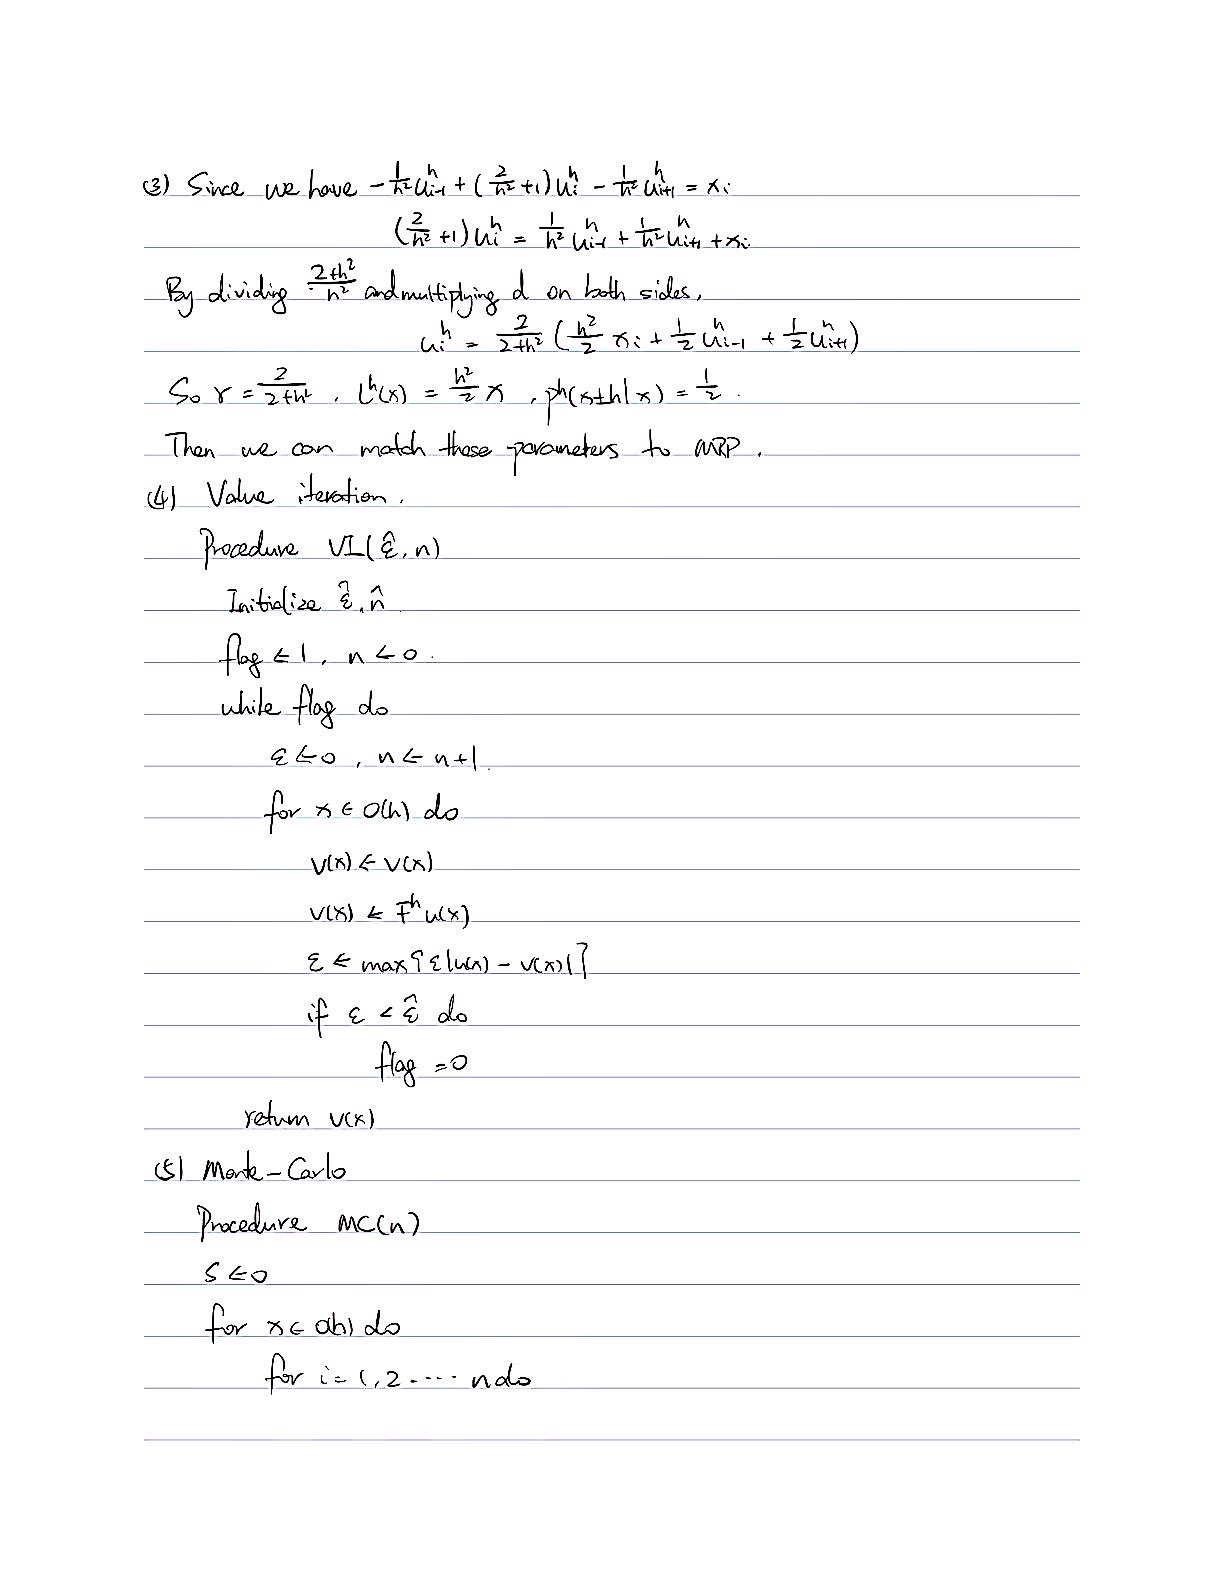 (3) Since we have -1/h² u^h_{i-1} + (2/h² +1) u^h_i - 1/h² u^h_{i+1} = x_i
(2/h² +1) u^h_i = 1/h² u^h_{i-1} + 1/h² u^h_{i+1} + x_i
By dividing (2+h²)/h² and multiplying d on both sides,
u_i^h = 2/(2+h²) (h²/2 x_i + 1/2 u^h_{i-1} + 1/2 u^h_{i+1})
So γ = 2/(2+h²), l^h(x) = h²/2 x, p^h(x±h|x) = 1/2.
Then we can match these parameters to MRP.
(4) Value iteration.
Procedure VI(ε̂, n)
Initialize ε̂, n̂
flag ← 1, n ← 0.
while flag do
ε ← 0, n ← n+1.
for x ∈ O(h) do
V(x) ← v(x)
v(x) ← F^h u(x)
ε ← max{ε|u(x) - v(x)|}
if ε < ε̂ do
flag = 0
return v(x)
(5) Monte-Carlo
Procedure MC(n)
S ← 0
for x ∈ O(h) do
for i = 1,2 ···· n do